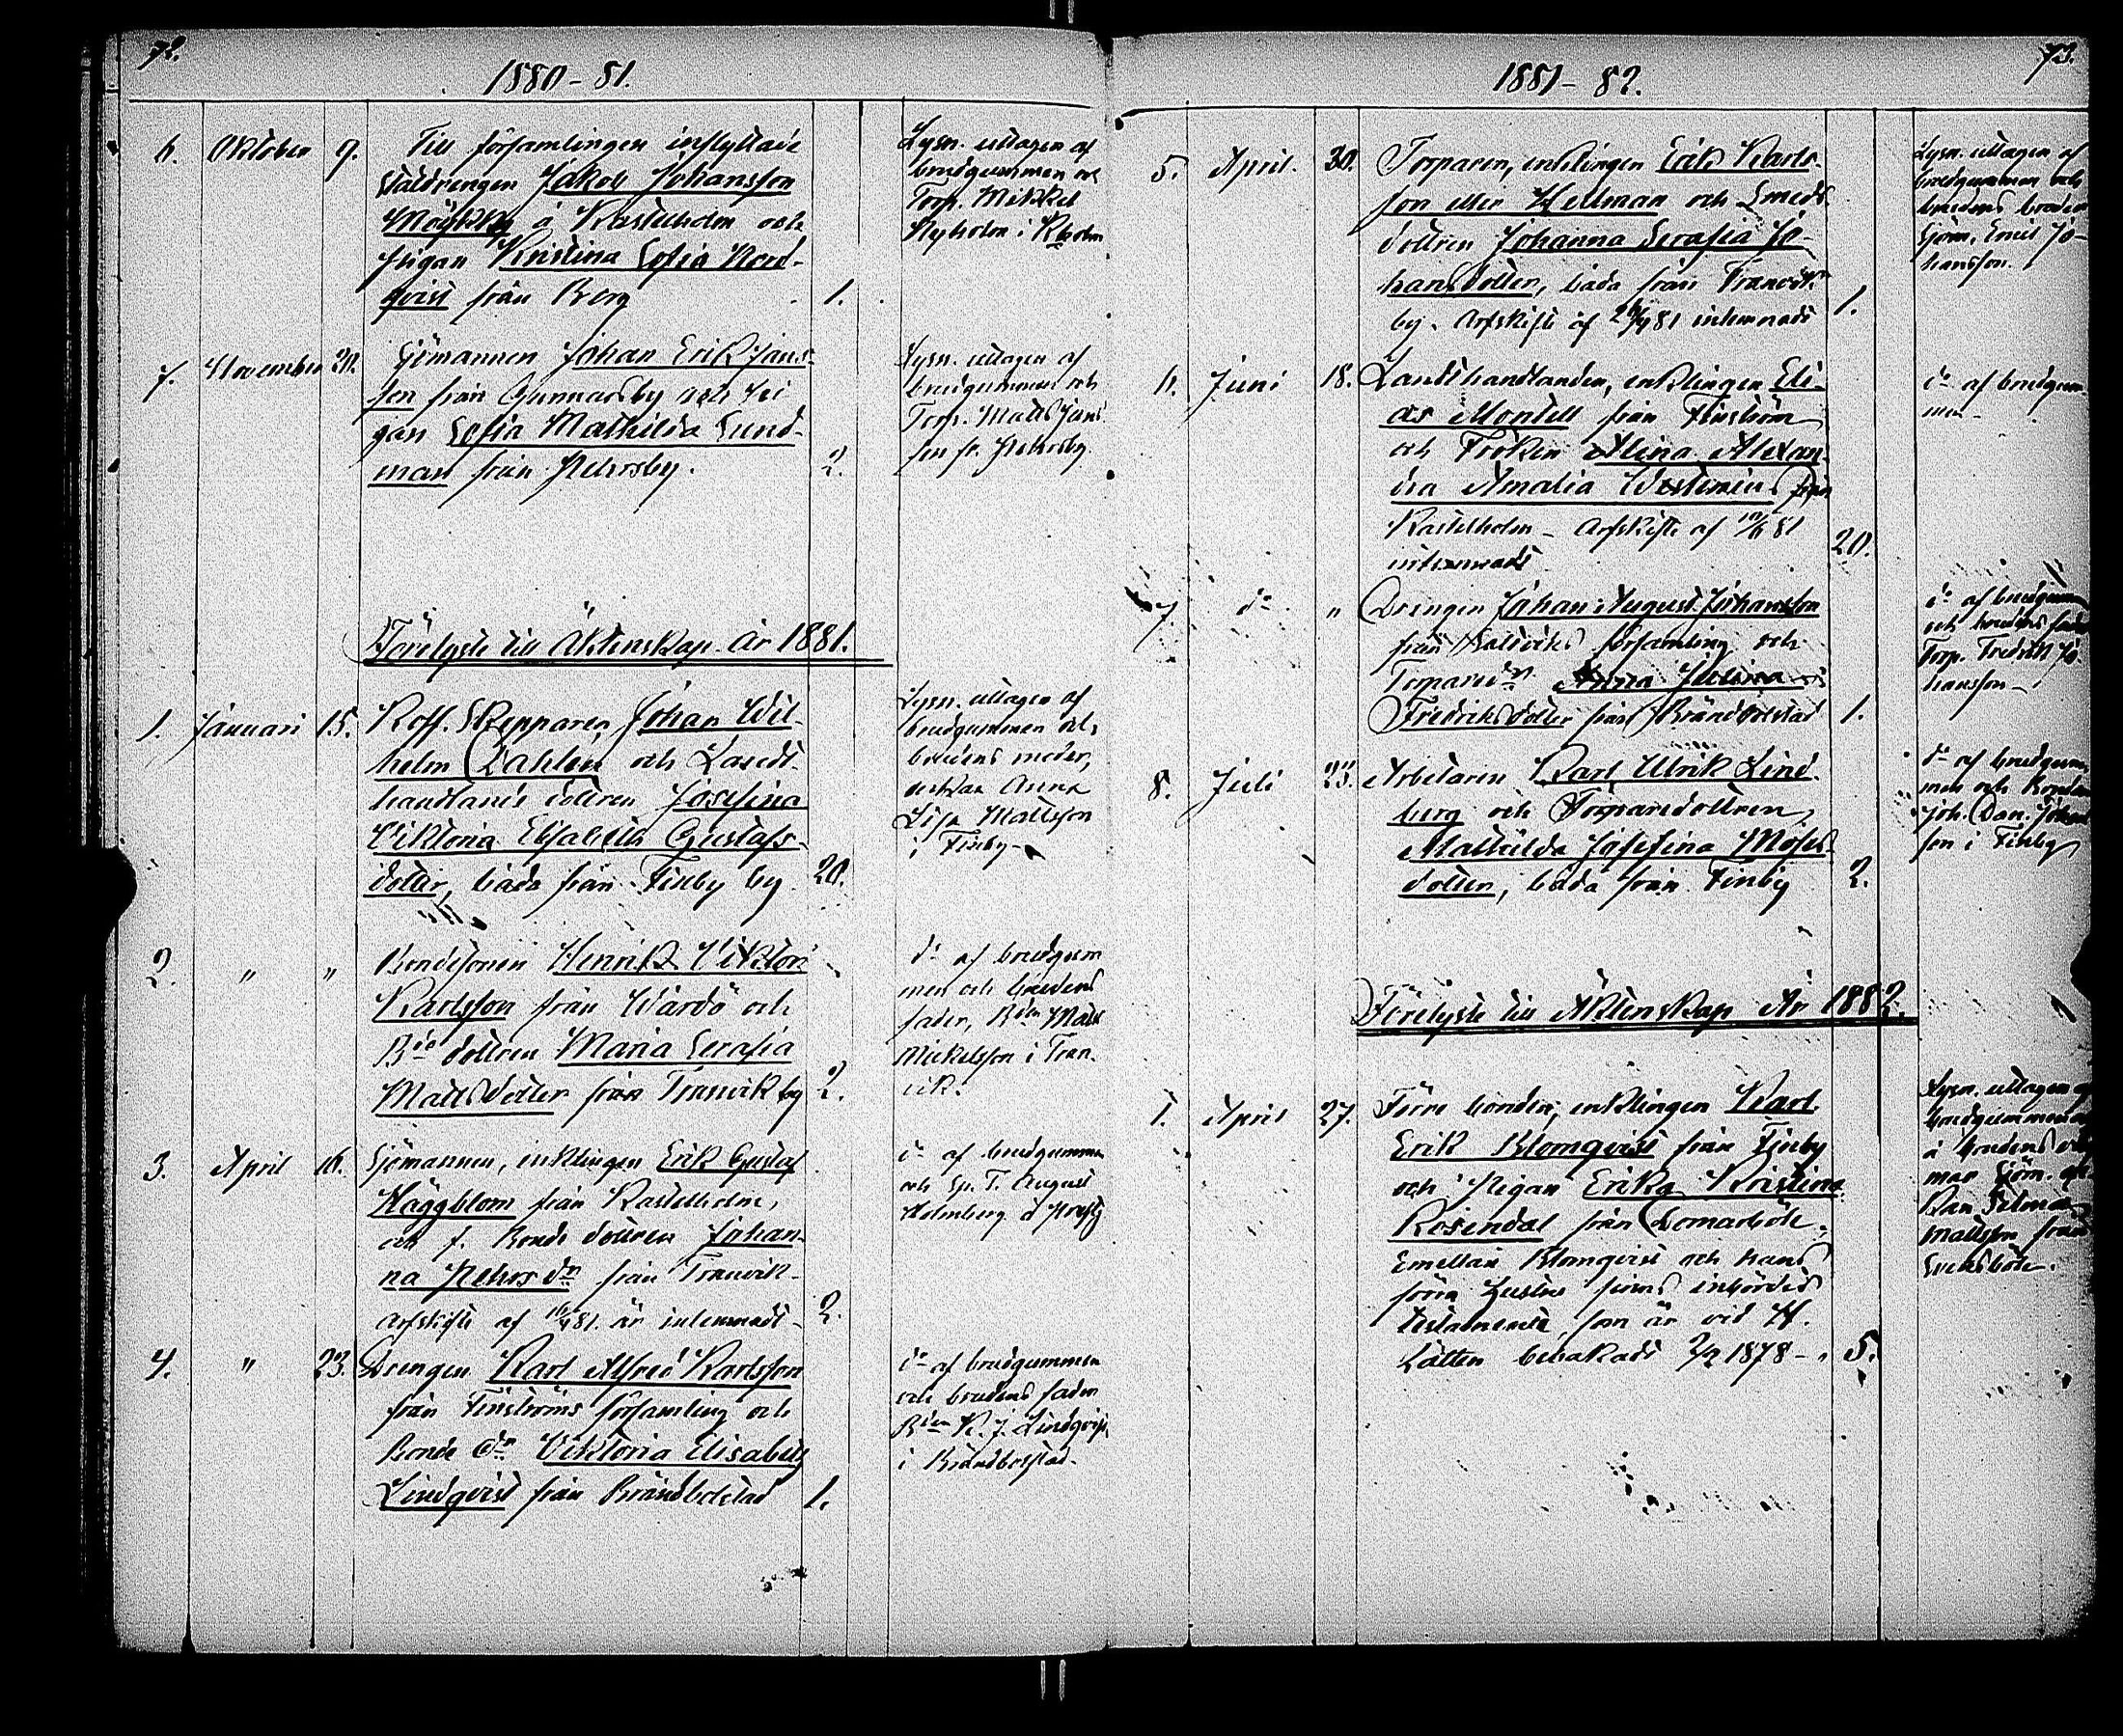 72.
1880-81.
6. Oktober 9. Till församlingen inflyttade
stáldrengen Jakob Johansson
å Kastelholm och
pigan Kristina Sofia Nord-
qvist från Berg 1.
Lysn. uttagen af
brudgummen och
Torp. Mikkel
Nyholm i Kholm
7. November 20. Sjömannen Johan Erik Jans-
son från Gunnarsby och Pi
gan Sofia Mathilda Lund-
man från Persby. 2.
Lysn. uttagen af
brudgummen och
Torp. Matts Jans
son fr.
Förelyste till Äktenskap år 1881.
1. Januari 15. Koff. Skepparen Johan Wil-
helm Dahlén och Landt-
handlande dottren Josefina
Viktoria Elisabeth Gustafs-
dotter, båda från Finby by 20.
Lysn. uttagen af
brudgummen och
brudens moder,
enkan Anna
Lisa Mattsson
i Finby
2. " " Bondesonen Henrik Viktor
Karlsson från Wårdö och
Bde dottren Maria Serafia
Mattsdotter från Tranvik by 2.
do af brudgum
men och brudens
fader, Bden Matts
Mickelsson i Tran-
vik.
3. April 16. Sjömannen, enklingen Erik Gustaf
Häggblom från Kastelholm,
och f. Bonde dottren Johan-
na Pehrs dn från Tranvik-
Arfskifte af 16/4 81. är inlemnadt- 2.
do af brudgummen
och Sp. T. August
Holmberg å
4. " 23. Drengen Karl Alfred Karlsson
från Finströms församling och
Bonde dn Viktoria Elisabeth
Lindqvist från Brändbolstad 1.
do af brudgummen
och brudens fader
Bden K. J. Lindqvist
i Brändbolstad.
73.
1881-82.
5. April. 30. Torparen, enklingen Erik Karls-
son eller Hellman och Smeds
dottren Johanna Serafia Jo-
hansdotter, båda från Tranvik
by. Arfskifte af 26/4 81 inlemnadt 1.
Lysn. uttagen af
brudgummen och
brudens broder
Sjöm. Emil Jo-
hansson.
6. Juni 18. Landthandlanden, enklingen Eli-
as Montell från Finström
och Fröken Alina Alexan-
dra Amalia från
Kastelholm - Arfskifte af 81
inlemnadt 20.
do af brudgum-
men
7 do " Drengen Johan August Johansson
från Saltviks församling och
Torparedn Anna
Fredriksdotter från Brändbolstad 1.
do af brudgummen
och brudens fader
Torp. Fredrik Jo-
hansson-
8. Juli 23. Arbetaren Karl Ulrik Lind-
berg och Torparedottren
Mathilda Josefina Moses-
dotter, båda från Finby 2.
do af brudgum-
men och Bonden
Joh. Dan. Johans
son i Finby
Förelyste till Äktenskap År 1882.
1. April 27. Förre bonden, enklingen Karl
Erik Blomqvist från Finby
och Pigan Erika Kristina
Rosendal från Domarböle.
Emellan Blomqvist och hans
förra hustru finns inbördes
testamente, som är vid H.
Rätten bevakadt 2/9 1878 - 5.
Lysn. uttagen af
brudgummen och
å brudens
Sjöm.
Mattsson från
Svedsböle.